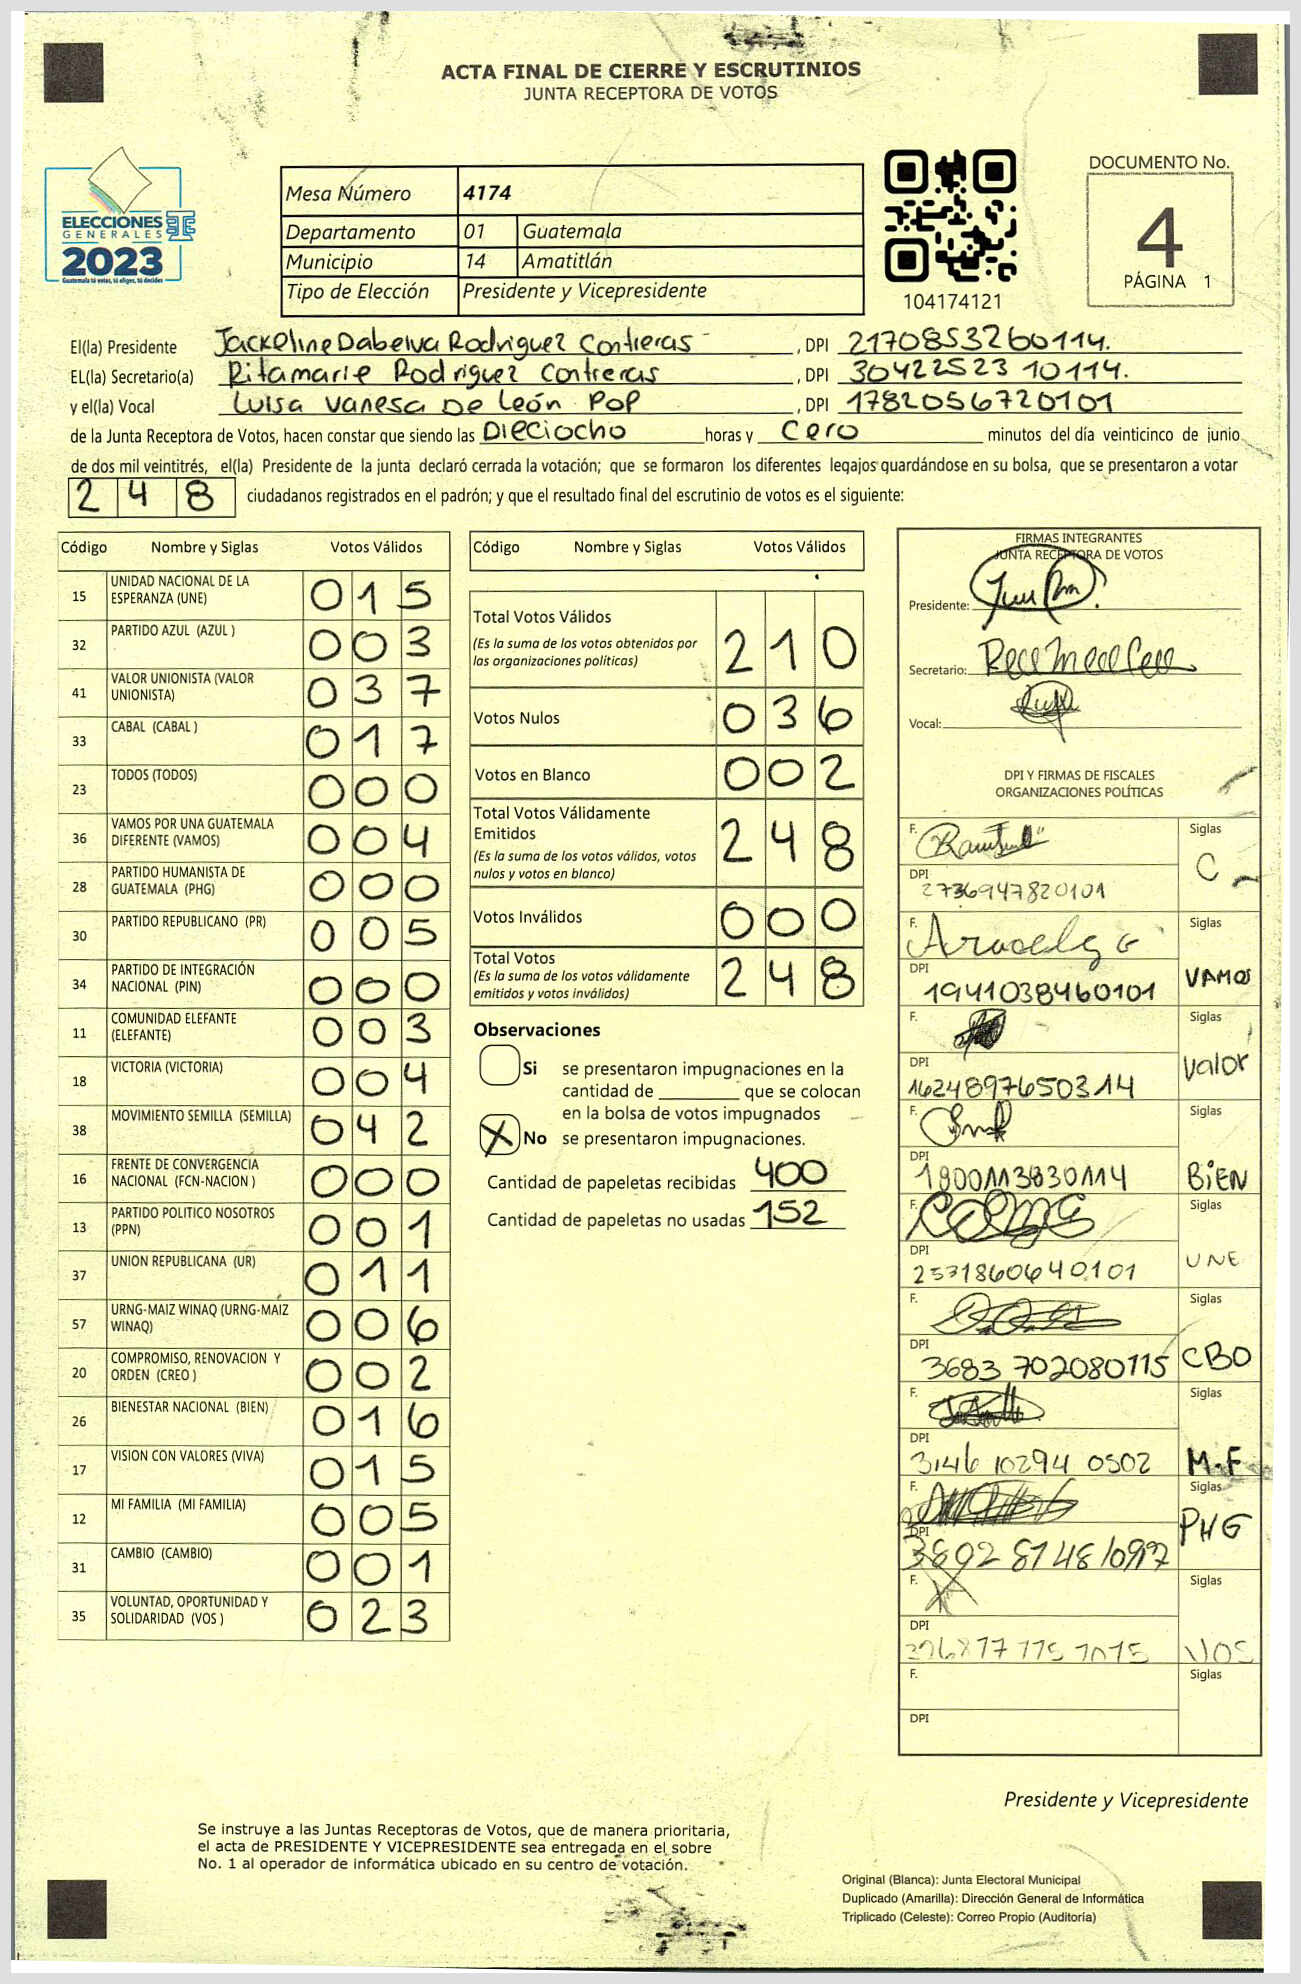 ACTA FINAL DE CIERRE Y ESCRUTINIOS
JUNTA RECEPTORA DE VOTOS
ELECCIONES
GENERALES
2023
Guatemala tú votas, tú eliges, tú decides
Mesa Número 4174
Departamento 01 Guatemala
Municipio 14 Amatitlán
Tipo de Elección Presidente y Vicepresidente
104174121
DOCUMENTO No.
4
PÁGINA 1
El(la) Presidente Jackeline Dabelva Rodriguez Contreras, DPI 2170853260114.
EL(la) Secretario(a) Ritamarie Rodriguez Contreras, DPI 30422523 10114.
y el(la) Vocal Luisa Vanesa De León Pop, DPI 1782056720101
de la Junta Receptora de Votos, hacen constar que siendo las Dieciocho horas y Cero minutos del día veinticinco de junio
de dos mil veintitrés, el(la) Presidente de la junta declaró cerrada la votación; que se formaron los diferentes legajos guardándose en su bolsa, que se presentaron a votar
248 ciudadanos registrados en el padrón; y que el resultado final del escrutinio de votos es el siguiente:
Código Nombre y Siglas Votos Válidos
15 UNIDAD NACIONAL DE LA ESPERANZA (UNE) 015
32 PARTIDO AZUL (AZUL ) 003
41 VALOR UNIONISTA (VALOR UNIONISTA) 037
33 CABAL (CABAL ) 017
23 TODOS (TODOS) 000
36 VAMOS POR UNA GUATEMALA DIFERENTE (VAMOS) 004
28 PARTIDO HUMANISTA DE GUATEMALA (PHG) 000
30 PARTIDO REPUBLICANO (PR) 005
34 PARTIDO DE INTEGRACIÓN NACIONAL (PIN) 000
11 COMUNIDAD ELEFANTE (ELEFANTE) 003
18 VICTORIA (VICTORIA) 004
38 MOVIMIENTO SEMILLA (SEMILLA) 042
16 FRENTE DE CONVERGENCIA NACIONAL (FCN-NACION ) 000
13 PARTIDO POLITICO NOSOTROS (PPN) 001
37 UNION REPUBLICANA (UR) 011
57 URNG-MAIZ WINAQ (URNG-MAIZ WINAQ) 006
20 COMPROMISO, RENOVACION Y ORDEN (CREO ) 002
26 BIENESTAR NACIONAL (BIEN) 016
17 VISION CON VALORES (VIVA) 015
12 MI FAMILIA (MI FAMILIA) 005
31 CAMBIO (CAMBIO) 001
35 VOLUNTAD, OPORTUNIDAD Y SOLIDARIDAD (VOS ) 023
Código Nombre y Siglas Votos Válidos
Total Votos Válidos 210
(Es la suma de los votos obtenidos por
las organizaciones políticas)
Votos Nulos 036
Votos en Blanco 002
Total Votos Válidamente
Emitidos 248
(Es la suma de los votos válidos, votos
nulos y votos en blanco)
Votos Inválidos 000
Total Votos 248
(Es la suma de los votos válidamente
emitidos y votos inválidos)
Observaciones
Si se presentaron impugnaciones en la
cantidad de ________ que se colocan
en la bolsa de votos impugnados
X No se presentaron impugnaciones.
Cantidad de papeletas recibidas 400
Cantidad de papeletas no usadas 152
FIRMAS INTEGRANTES
JUNTA RECEPTORA DE VOTOS
Presidente:
Secretario:
Vocal:
DPI Y FIRMAS DE FISCALES
ORGANIZACIONES POLÍTICAS
F. Siglas
DPI 2736947820101 C
F. Siglas
DPI 1941038460101 VAMOS
F. Siglas
DPI 1624897650314 Valor
F. Siglas
DPI 1800113830114 BiEN
F. Siglas
DPI 2531860640101 UNE
F. Siglas
DPI 3683 702080115 CBO
F. Siglas
DPI 3146 10294 0502 M.F
F. Siglas
DPI PHG
F. Siglas
DPI VOS
F. Siglas
DPI
Presidente y Vicepresidente
Se instruye a las Juntas Receptoras de Votos, que de manera prioritaria,
el acta de PRESIDENTE Y VICEPRESIDENTE sea entregada en el sobre
No. 1 al operador de informática ubicado en su centro de votación.
Original (Blanca): Junta Electoral Municipal
Duplicado (Amarilla): Dirección General de Informática
Triplicado (Celeste): Correo Propio (Auditoría)